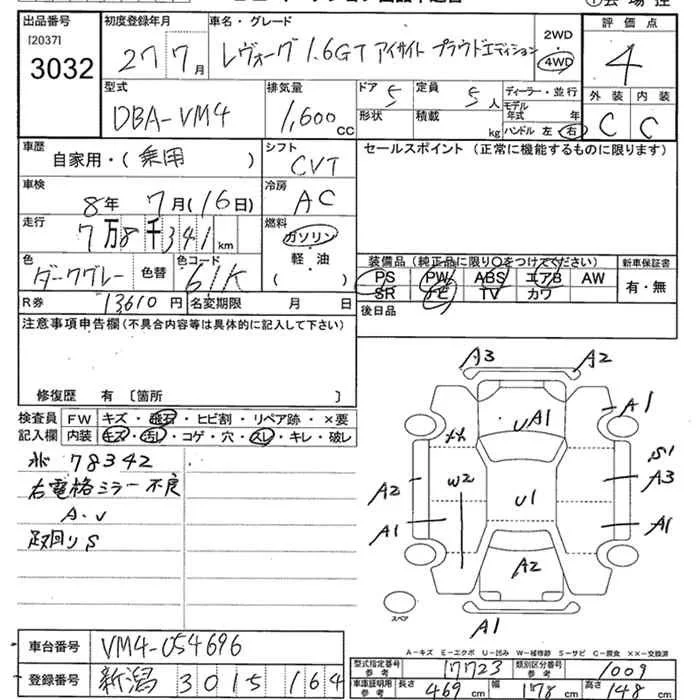 出品番号 初度登録年月 車名・グレード 評価点
[2037]
3032 27 7月 レヴォーグ 1.6GT アイサイト プラウドエディション 2WD 4WD 4
型式 排気量 ドア 定員 ディーラー・並行 外装 内装
DBA-VM4 1,600 CC 5 5人 モデル年式 年
形状 積載 kg ハンドル 左 右 C C
車歴 シフト セールスポイント (正常に機能するものに限ります)
自家用・(乗用) CVT
車検 冷房
8年 7月(16日) AC
走行 燃料
7万8千341km ガソリン
軽・油
色 色替 色コード 装備品(純正品に限り○をつけてください) 新車保証書
ダークグレー 61K PS PW ABS エアB AW 有・無
SR ナビ TV カワ
R券 13610円 名変期限 月 日 後日品
注意事項申告欄(不具合内容等は具体的に記入して下さい)
修復歴 有 〔箇所 〕
検査員 FW キズ・飛石・ヒビ割・リペア跡・×要
記入欄 内装 キズ・汚レ・コゲ・穴・スレ・キレ・破レ
78342
右電格ミラー不良
A.V
足回りS
A3 A2
UA1 A1
S1
A2 W2 A3
A1 U1 A1
A2
スペア
A1
A-キズ E-エクボ U-凹み W-補修跡 S-サビ C-腐食 ××-交換済
車台番号 VM4-054696
型式指定番号 参考 17723 類別区分番号 参考 1009
登録番号 新潟 301 5 164
車庫証明用 参考 長さ 469cm 幅 178cm 高さ 148cm